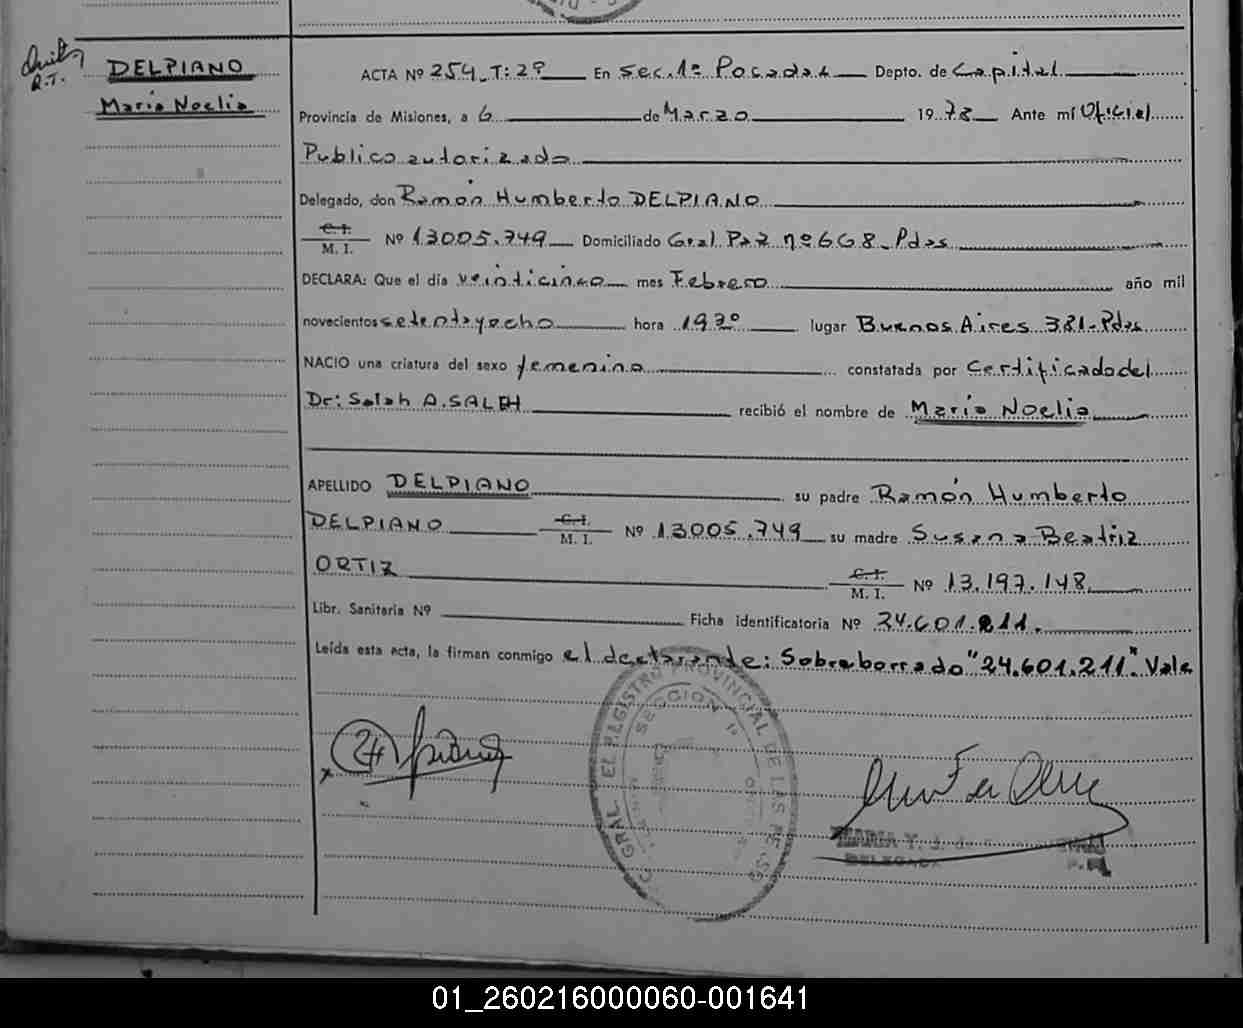 DELPIANO
María Noelia
ACTA Nº 254. T: 2º En Sec. 1ª Posadas Depto. de Capital
Provincia de Misiones, a 6 de Marzo 1978 Ante mí Oficial
Publico autorizado
Delegado, don Ramón Humberto DELPIANO
C. I.
M. I. Nº 13005.749 Domiciliado Gral Paz nº 668 - Pdas
DECLARA: Que el día veinticinco mes Febrero año mil
novecientos setenta y ocho hora 19 30 lugar Buenos Aires 381 - Pdas
NACIO una criatura del sexo femenino constatada por Certificado del
Dr: Salah A. SALEH recibió el nombre de María Noelia
APELLIDO DELPIANO su padre Ramón Humberto
DELPIANO C. I. M. I. Nº 13005.749 su madre Susana Beatriz
ORTIZ C. I. M. I. Nº 13.197.148
Libr. Sanitaria Nº Ficha identificatoria Nº 24.601.211.
Leída esta acta, la firman conmigo el declarante: Sobreborrado "24.601.211". Vale
GRAL. EL REGISTRO PROVINCIAL DE LAS
SECCION 1ª
MARIA T. J. de
DELEGADA
01_260216000060-001641